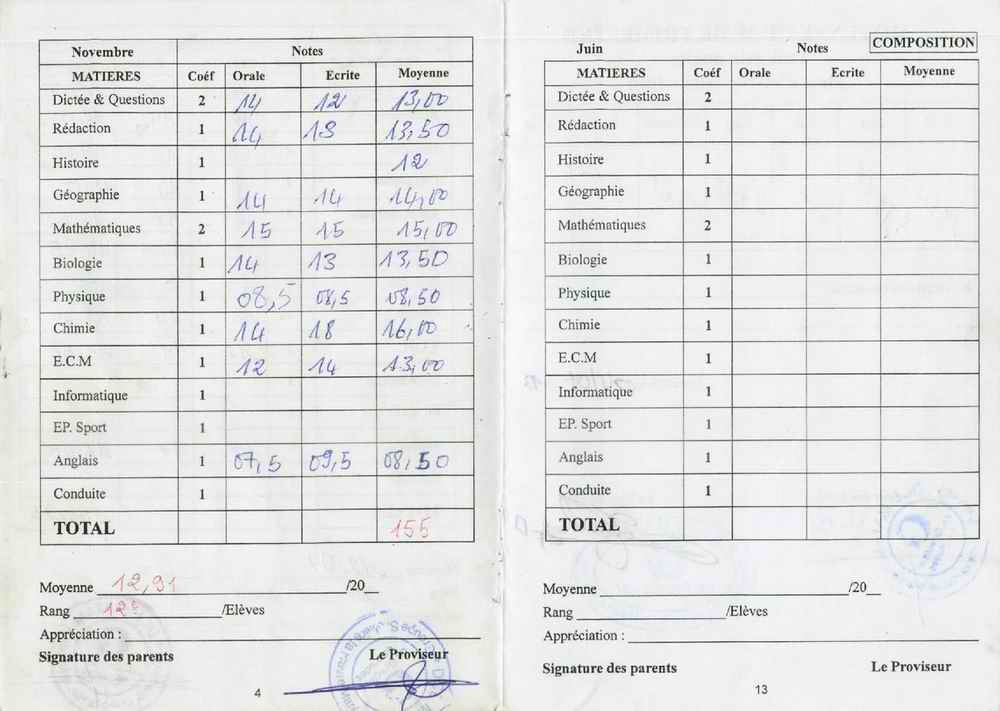 Novembre Notes
MATIERES Coéf Orale Ecrite Moyenne
Dictée & Questions 2 14 12 13,00
Rédaction 1 14 13 13,50
Histoire 1 12
Géographie 1 14 14 14,00
Mathématiques 2 15 15 15,00
Biologie 1 14 13 13,50
Physique 1 08,5 08,5 08,50
Chimie 1 14 18 16,00
E.C.M 1 12 14 13,00
Informatique 1
EP. Sport 1
Anglais 1 07,5 09,5 08,50
Conduite 1
TOTAL 155
Moyenne 12,91 /20
Rang 12e /Elèves
Appréciation :
Signature des parents Le Proviseur
4
Juin Notes COMPOSITION
MATIERES Coéf Orale Ecrite Moyenne
Dictée & Questions 2
Rédaction 1
Histoire 1
Géographie 1
Mathématiques 2
Biologie 1
Physique 1
Chimie 1
E.C.M 1
Informatique 1
EP. Sport 1
Anglais 1
Conduite 1
TOTAL
Moyenne /20
Rang /Elèves
Appréciation :
Signature des parents Le Proviseur
13